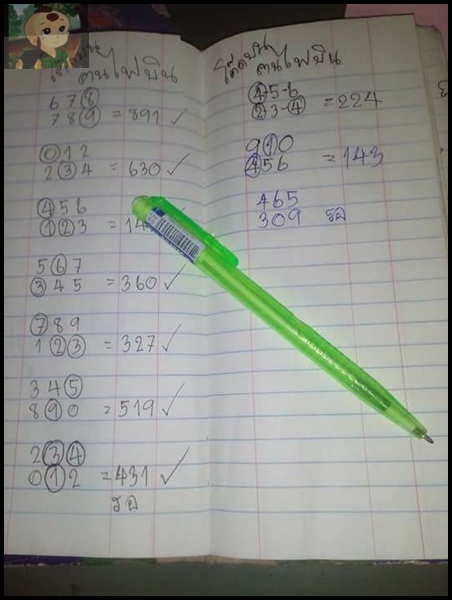 คนไฟบิน
678
789 = 891 ✓
012
234 = 630 ✓
456
123 = 14
567
345 = 360 ✓
789
123 = 327 ✓
345
890 = 519 ✓
234
012 = 431 ✓
รอ
คนไฟบิน
45-6
23-4 = 224
910
456 = 143
465
309 รอ